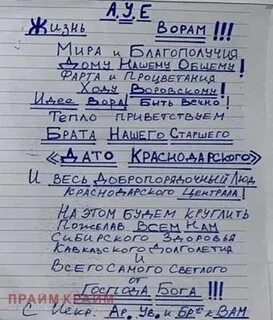 А.У.Е
Жизнь Ворам!!!
Мира и Благополучия
Дому Нашему Общему!
Фарта и Процветания
Ходу Воровскому!
Идее Вора! Быть Вечно!
Тепло приветствуем
Брата Нашего Старшего
«Дато Краснодарского»
И весь Добропорядочный Люд
Краснодарского Централа!
На этом будем круглить
Пожелав Всем Нам
Сибирского Здоровья
Кавказского Долголетия
и
Всего Самого Светлого
от
Господа Бога!!!
С Искр. Ар, Ув, и Бр К Вам
ПРАЙМ КРАЙМ